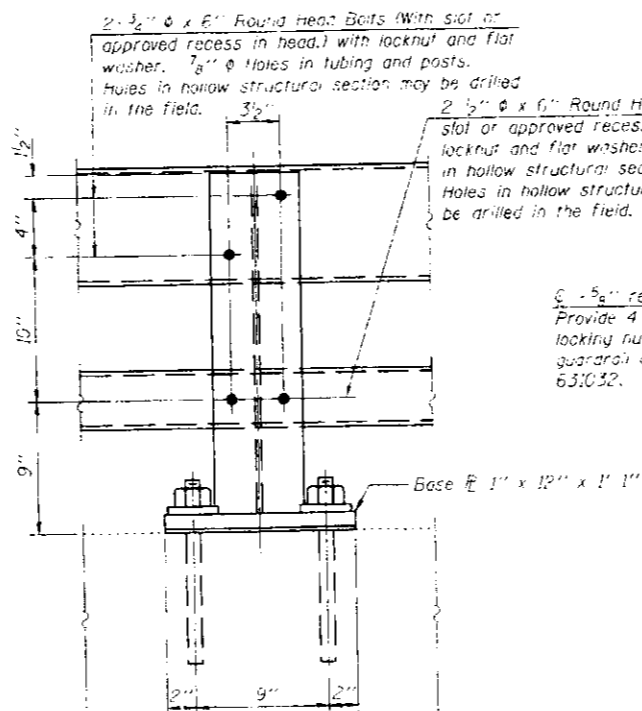 2 - 3/4" ϕ x 6" Round Head Bolts (With slot or
approved recess in head.) with locknut and flat
washer. 7/8" ϕ Holes in tubing and posts.
Holes in hollow structural section may be drilled
in the field.
3 1/2"
2 1/2" ϕ x 6" Round H
slot or approved recess
locknut and flat washe
in hollow structural sec
Holes in hollow structur
be drilled in the field.
1 1/2"
4"
10"
9"
℄ - 5/8" re
Provide 4
locking nu
guardrail
631032.
Base ℄ 1" x 12" x 1' 1"
2"
9"
2"